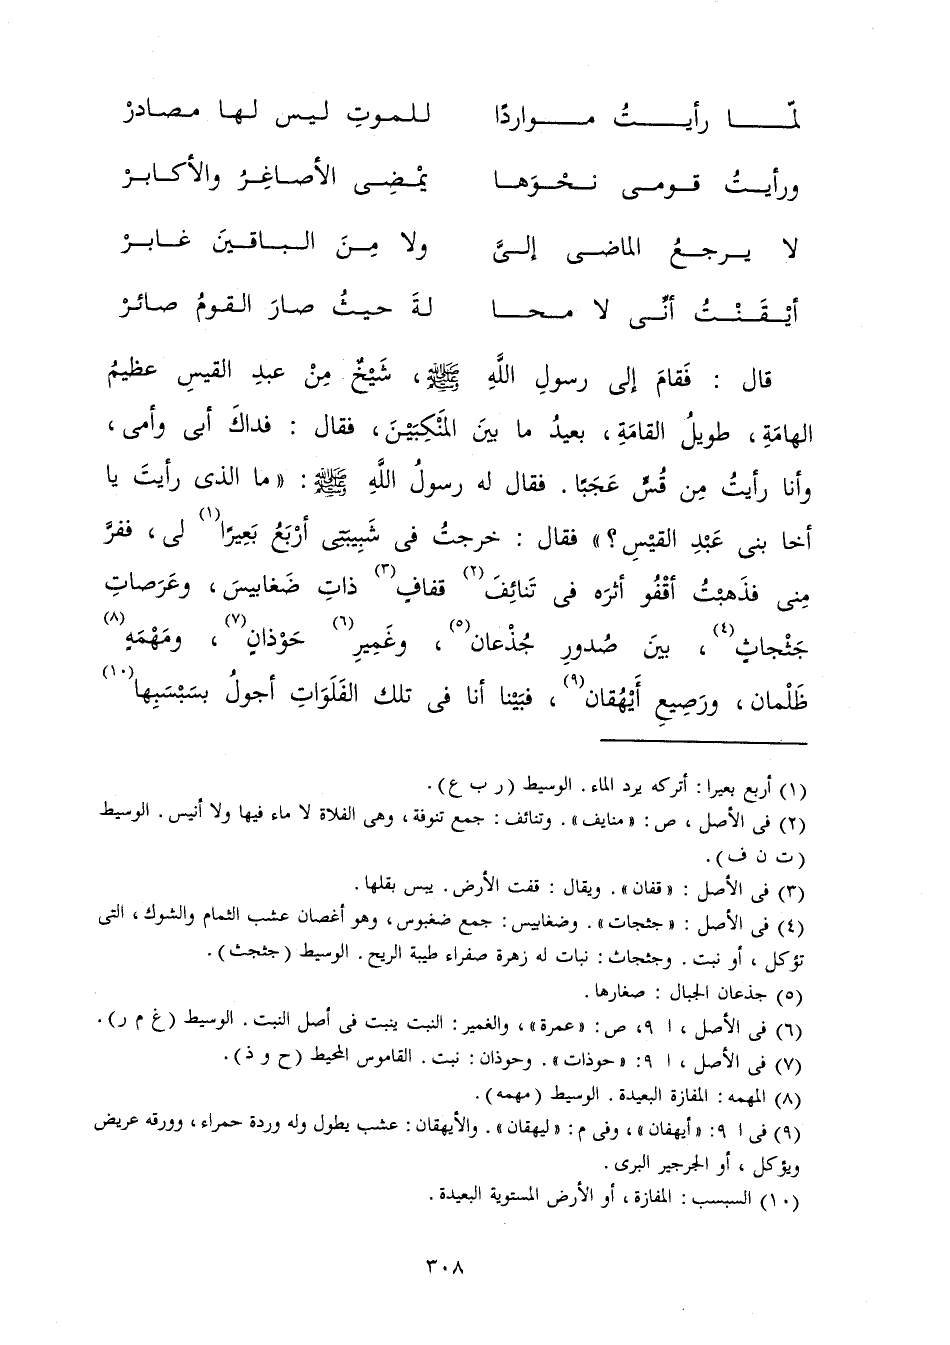 لمّـا رأيـتُ مـواردًا للـموتِ ليـس لها مـصادرْ
ورأيـتُ قـومى نـحْـوَهـا يمْـضِـى الأصـاغِـرُ والأكـابـرْ
لا يـرجـعُ الماضـى إلىَّ ولا مِـنَ الـبـاقـينَ غـابـرْ
أيْـقَـنْـتُ أنِّـى لا مـحـا لةَ حيـثُ صارَ القومُ صائرْ
قال : فَقامَ إلى رسولِ اللَّهِ ﷺ ، شَيْخٌ مِنْ عبدِ القيسِ عظيمُ
الهامَةِ ، طويلُ القامَةِ ، بعيدُ ما بينَ المَنْكِبَيْن ، فقال : فداكَ أبى وأمى ،
وأنا رأيتُ مِن قُسٍّ عَجَبًا . فقال له رسولُ اللَّهِ ﷺ : « ما الذى رأيتَ يا
أخا بنى عَبْدِ القيْسِ ؟ » فقال : خرجتُ فى شَبِيبَتِى أرْبَعُ بَعِيرًا(١) لى ، ففرَّ
مِنى فذَهبْتُ أقْفُو أثرَه فى تَنائِفَ(٢) قفافٍ(٣) ذاتِ ضَغابيسَ ، وعَرَصاتِ
جَثْجاثٍ(٤) ، بينَ صُدورِ جُذْعان(٥) ، وغَمِيرِ(٦) حَوْذانٍ(٧) ، ومَهْمَهٍ(٨)
ظَلْمان ، ورَصِيعِ أَيْهُقان(٩) ، فبَيْنا أنا فى تلك الفَلَوَاتِ أجولُ بسَبْسَبِها(١٠)
(١) أربع بعيرا : أتركه يرد الماء . الوسيط ( ر ب ع ) .
(٢) فى الأصل ، ص : « منايف » . وتنائف : جمع تنوفة ، وهى الفلاة لا ماء فيها ولا أنيس . الوسيط
( ت ن ف ) .
(٣) فى الأصل : « قفان » . ويقال : قفت الأرض . يبس بقلها .
(٤) فى الأصل : « جثجات » . وضغابيس : جمع ضغبوس ، وهو أغصان عشب الثمام والشوك ، التى
تؤكل ، أو نبت . وجثجاث : نبات له زهرة صفراء طيبة الريح . الوسيط ( جثجث ) .
(٥) جذعان الجبال : صغارها .
(٦) فى الأصل ، ا ٩ ، ص : « عمرة » ، والغمير : النبت ينبت فى أصل النبت . الوسيط ( غ م ر ) .
(٧) فى الأصل ، ا ٩ : « حوذات » . وحوذان : نبت . القاموس المحيط ( ح و ذ ) .
(٨) المهمه : المفازة البعيدة . الوسيط ( مهمه ) .
(٩) فى ا ٩ : « أيهفان » ، وفى م : « ليهقان » . والأيهقان : عشب يطول وله وردة حمراء ، وورقه عريض
ويؤكل ، أو الجرجير البرى .
(١٠) السبسب : المفازة ، أو الأرض المستوية البعيدة .
٣٠٨